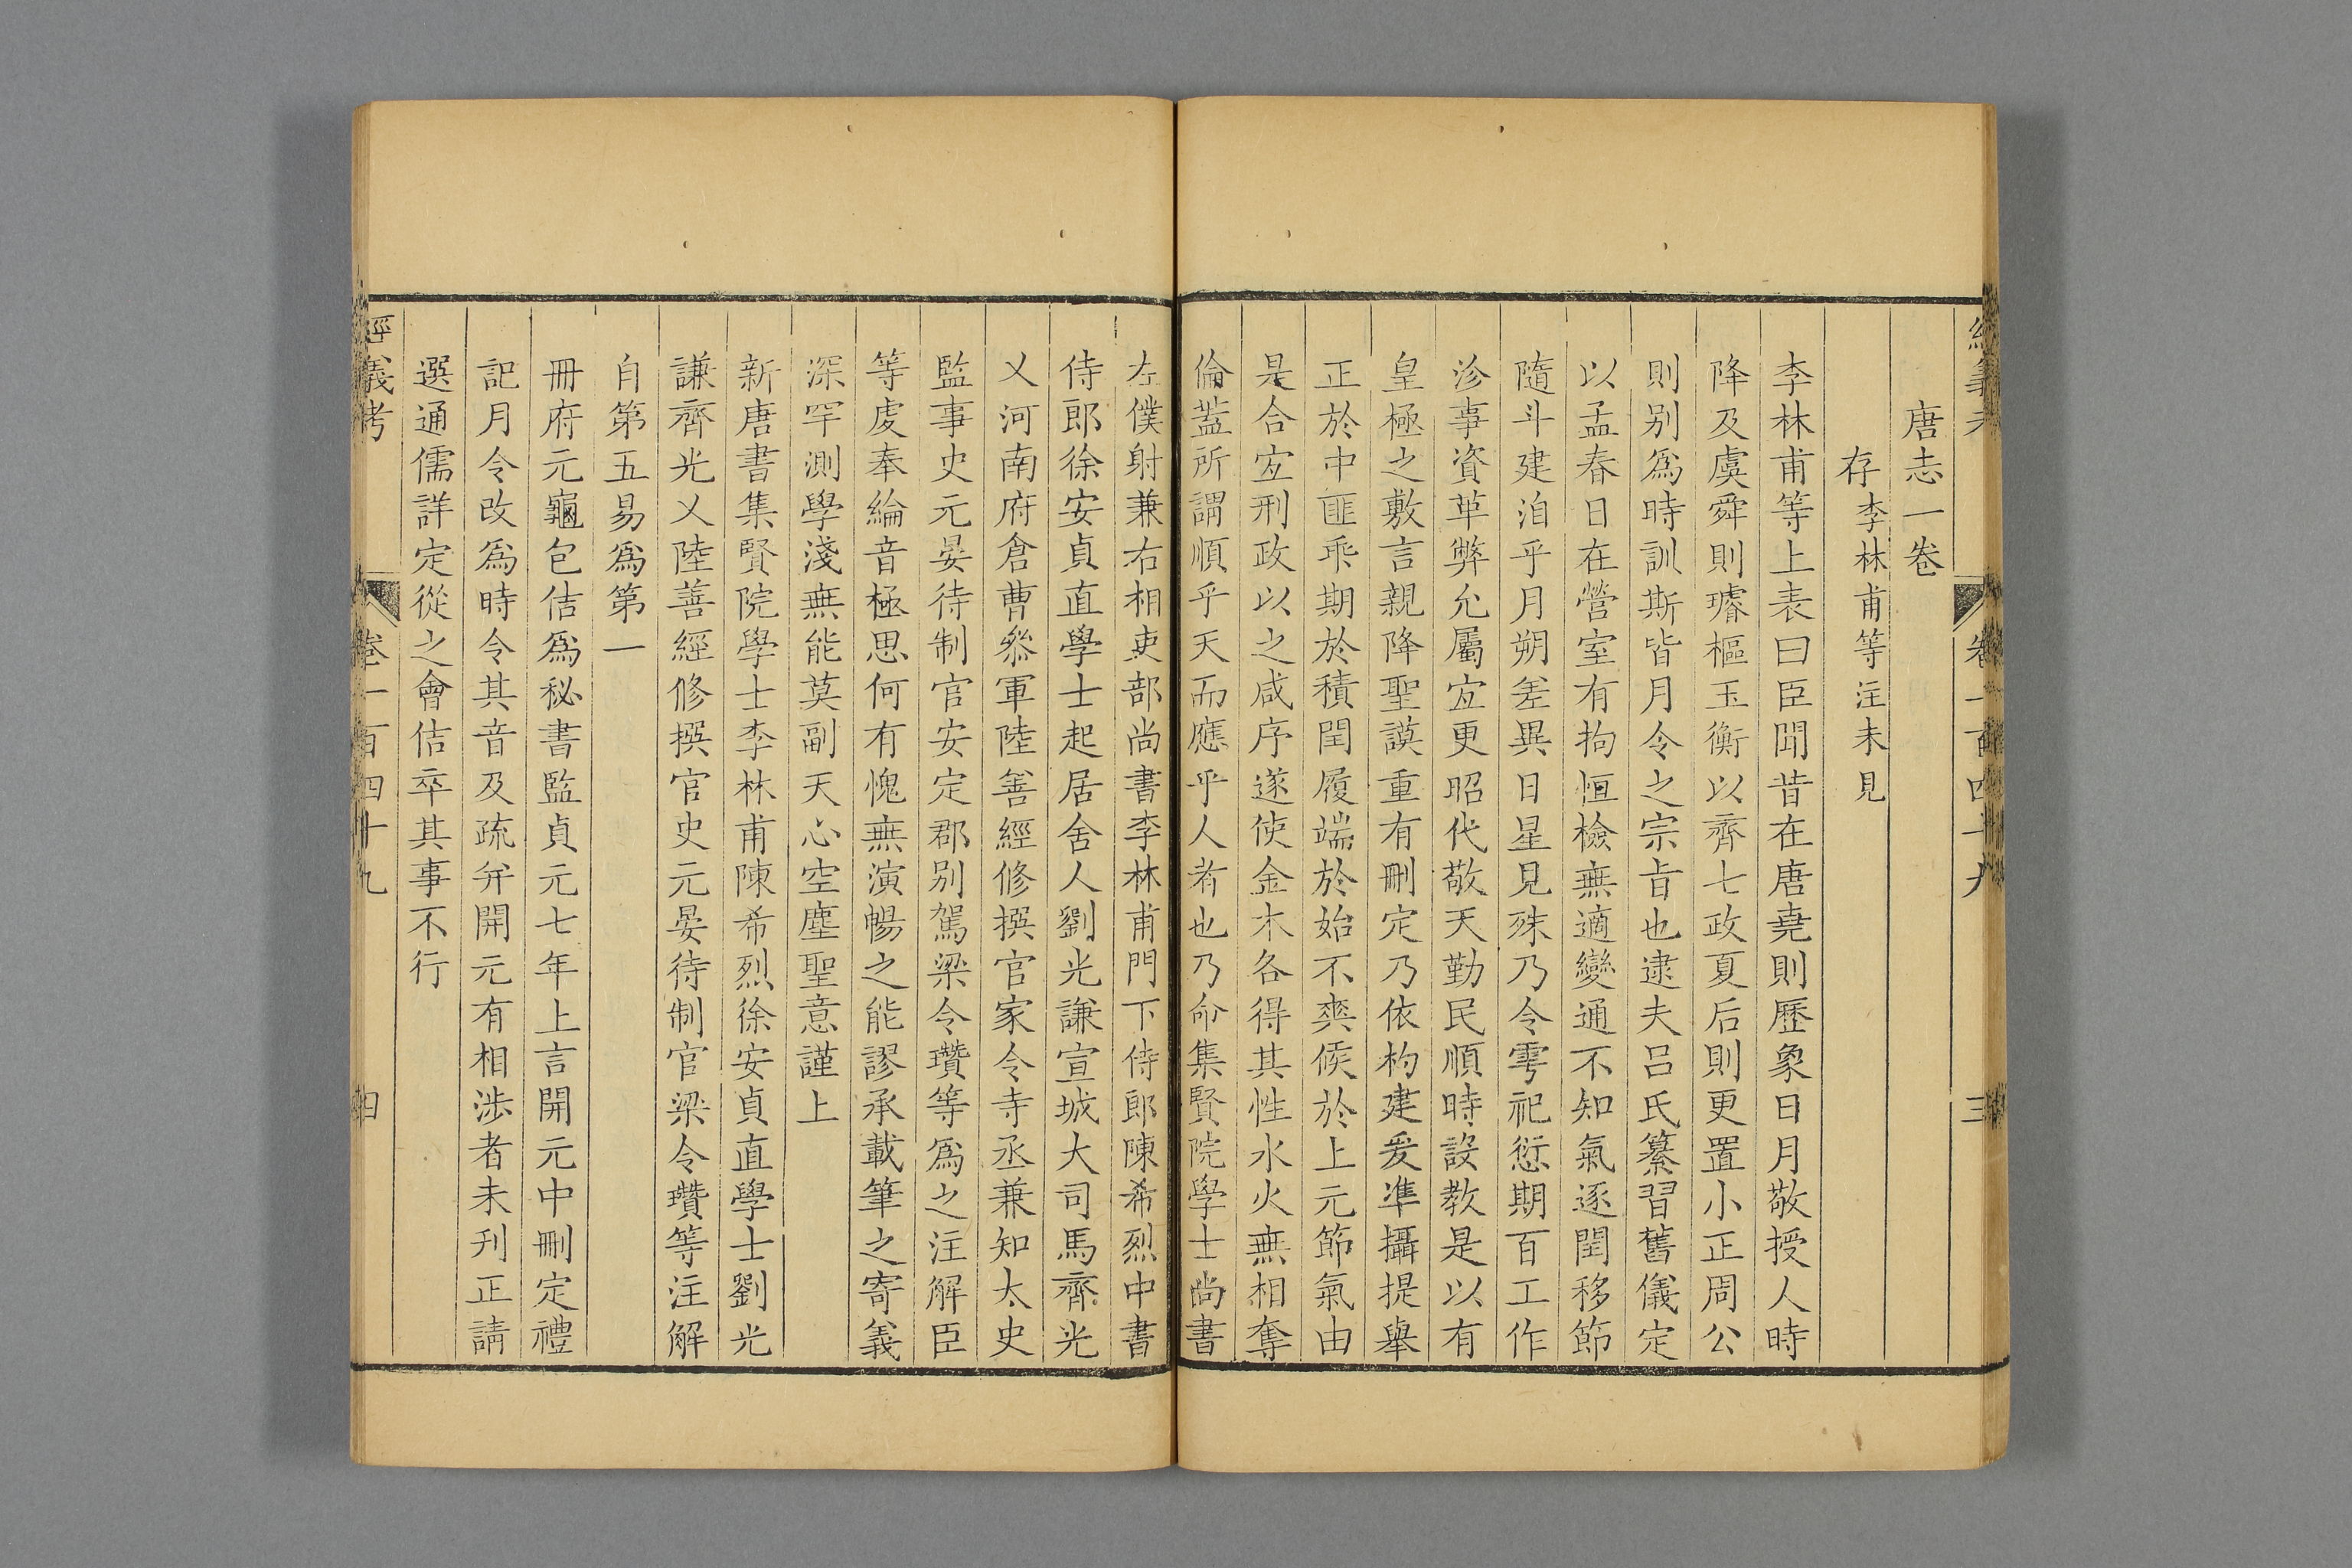 經義考 卷一百四十九 三
唐志一卷
存李林甫等注未見
李林甫等上表曰臣聞昔在唐堯則歷象日月敬授人時
降及虞舜則璿樞玉衡以齊七政夏后則更置小正周公
則别爲時訓斯皆月令之宗㫖也逮夫呂氏纂習舊儀定
以孟春日在營室有拘恒檢無適變通不知氣逐閏移節
隨斗建洎乎月朔差異日星見殊乃令雩祀愆期百工作
沴事資革弊允屬宜更昭代敬天勤民順時設教是以有
皇極之敷言親降聖謨重有刪定乃依杓建爰凖攝提舉
正於中匪乖期於積閏履端於始不爽候於上元節氣由
是合宜刑政以之咸序遂使金木各得其性水火無相奪
倫葢所謂順乎天而應乎人者也乃命集賢院學士尚書
左僕射兼右相吏部尚書李林甫門下侍郎陳希烈中書
侍郎徐安貞直學士起居舍人劉光謙宣城大司馬齊光
乂河南府倉曹叅軍陸善經修撰官家令寺丞兼知太史
監事史元晏待制官安定郡别駕梁令瓚等爲之注解臣
等䖏奉綸音極思何有愧無演暢之能謬承載筆之寄義
深罕測學淺無能莫副天心空塵聖意謹上
新唐書集賢院學士李林甫陳希烈徐安貞直學士劉光
謙齊光乂陸善經修撰官史元晏待制官梁令瓚等注解
自第五易爲第一
冊府元龜包佶爲秘書監貞元七年上言開元中刪定禮
記月令改爲時令其音及疏并開元有相涉者未刋正請
選通儒詳定從之會佶卒其事不行
經義考 卷一百四十九 四